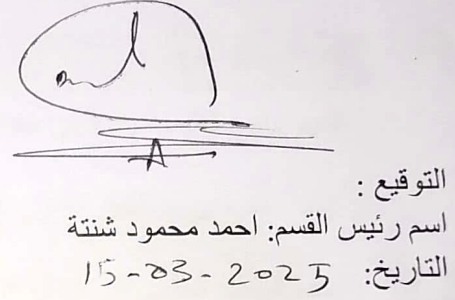 التوقيع :
اسم رئيس القسم: احمد محمود شنتة
التاريخ: 15-03-2025